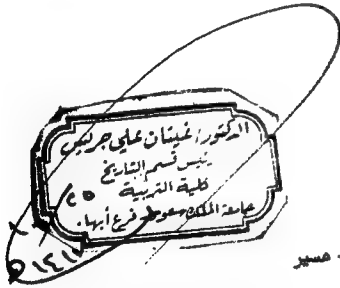 الدكتور/غيثان علي جريس
رئيس قسم التاريخ
كلية التربية
جامعة الملك سعود فرع أبها.
٢٥
عسير